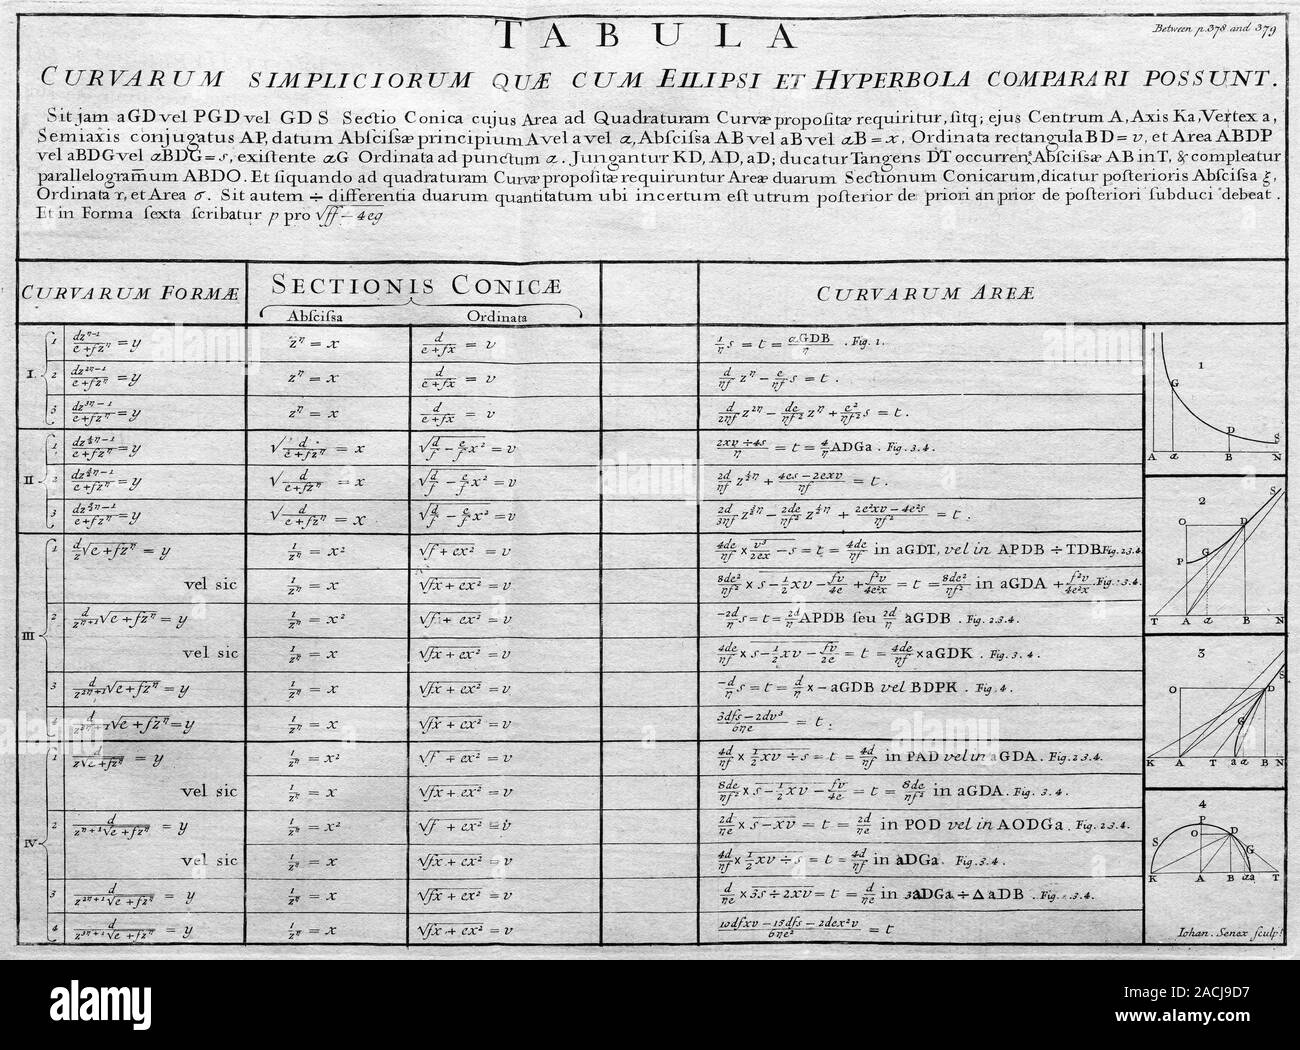 TABULA
Between p.378 and 379
CURVARUM SIMPLICIORUM QUÆ CUM ELLIPSI ET HYPERBOLA COMPARARI POSSUNT.
Sit jam aGD vel PGD vel GDS Sectio Conica cujus Area ad Quadraturam Curvæ propositæ requiritur, sitq; ejus Centrum A, Axis Ka, Vertex a,
Semiaxis conjugatus AP, datum Abſciſsæ principium A vel a vel α, Abſciſsa AB vel aB vel αB = x, Ordinata rectangula BD = v, et Area ABDP
vel aBDG vel αBDG = s, existente αG Ordinata ad punctum α. Jungantur KD, AD, aD; ducatur Tangens DT occurrens Abſciſsæ AB in T, & compleatur
parallelogram̄um ABDO. Et siquando ad quadraturam Curvæ propositæ requiruntur Areæ duarum Sectionum Conicarum, dicatur posterioris Abſciſsa ξ,
Ordinata τ, et Area σ. Sit autem ÷ differentia duarum quantitatum ubi incertum est utrum posterior de priori an prior de posteriori subduci debeat.
Et in Forma sexta scribatur p pro √ff − 4eg
CURVARUM FORMÆ
SECTIONIS CONICÆ
Abſciſsa Ordinata
CURVARUM AREÆ
I. 1 dz^(η−1)/(e+fz^η) = y z^η = x d/(e+fx) = v 1/η s = t = αGDB/η . Fig. 1.
2 dz^(2η−1)/(e+fz^η) = y z^η = x d/(e+fx) = v d/ηf z^η − e/ηf s = t.
3 dz^(3η−1)/(e+fz^η) = y z^η = x d/(e+fx) = v d/2ηf z^(2η) − de/ηf² z^η + e²/ηf² s = t.
II 1 dz^(½η−1)/(e+fz^η) = y √d/(e+fz^η) = x √d/f − e/f x² = v (2xv ÷ 4s)/η = t = 4/η ADGa. Fig. 3.4.
2 dz^(3/2η−1)/(e+fz^η) = y √d/(e+fz^η) = x √d/f − e/f x² = v 2d/ηf z^(½η) + (4es − 2exv)/ηf = t.
3 dz^(5/2η−1)/(e+fz^η) = y √d/(e+fz^η) = x √d/f − e/f x² = v 2d/3ηf z^(3/2η) − 2de/ηf² z^(½η) + (2e²xv − 4e²s)/ηf² = t.
III 1 d/z √e+fz^η = y 1/z^η = x² √f+ex² = v 4de/ηf × v³/2ex − s = t = 4de/ηf in aGDT, vel in APDB ÷ TDB. Fig. 2.3.4.
vel sic 1/z^η = x √fx+ex² = v 8de²/ηf² × s − ½xv − fv/4e + f²v/4e²x = t = 8de²/ηf² in aGDA + f²v/4e²x . Fig. 3.4.
2 d/z^(η+1) √e+fz^η = y 1/z^η = x² √f+ex² = v −2d/η s = t = 2d/η APDB seu 2d/η aGDB . Fig. 2.3.4.
vel sic 1/z^η = x √fx+ex² = v 4de/ηf × s − ½xv − fv/2e = t = 4de/ηf × aGDK . Fig. 3.4.
3 d/z^(2η+1) √e+fz^η = y 1/z^η = x √fx+ex² = v −d/η s = t = d/η × −aGDB vel BDPK . Fig. 4.
4 d/z^(3η+1) √e+fz^η = y 1/z^η = x √fx+ex² = v (3dfs − 2dv³)/6ηe = t.
IV 1 d/(z√e+fz^η) = y 1/z^η = x² √f+ex² = v 4d/ηf × ½xv ÷ s = t = 4d/ηf in PAD vel in aGDA. Fig. 2.3.4.
vel sic 1/z^η = x √fx+ex² = v 8de/ηf² × s − ½xv − fv/4e = t = 8de/ηf² in aGDA. Fig. 3.4.
2 d/(z^(η+1)√e+fz^η) = y 1/z^η = x² √f+ex² = v 2d/ηe × s − xv = t = 2d/ηe in POD vel in AODGa . Fig. 2.3.4.
vel sic 1/z^η = x √fx+ex² = v 4d/ηf × ½xv ÷ s = t = 4d/ηf in aDGa. Fig. 3.4.
3 d/(z^(2η+1)√e+fz^η) = y 1/z^η = x √fx+ex² = v d/ηe × 3s ÷ 2xv = t = d/ηe in 3aDGa ÷ ΔaDB . Fig. 3.4.
4 d/(z^(3η+1)√e+fz^η) = y 1/z^η = x √fx+ex² = v (10dfxv − 15dfs − 2dex²v)/6ηe² = t
1
G D S
A α B N
2
S
O D
P G
T A α B N
3
S
O D
G
K A T a α B N
4
P
S O D G
K A B α a T
Iohan. Senex sculp.t
alamy
Image ID: 2ACJ9D7
www.alamy.com